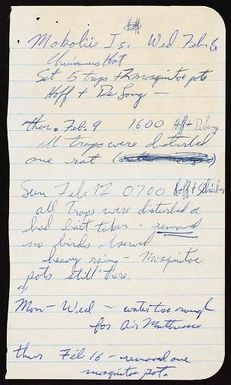 Mokolii Is. Wed Feb. 
Chinamans Hat
Set 6 traps + 2 mosquito pots
Hoff + DeLong —
thur. Feb. 9 1600 Hoff + DeLong
all traps were disturbed
one rat
Sun Feb. 12 0700 Hoff +
all Traps were disturbed &
had bait taken - 
no birds
heavy rains - Mosquitoe
pots still there.
Mon - Wed - water too rough
for Air Mattress
thur Feb 16 - removed one
mosquitoe pot.